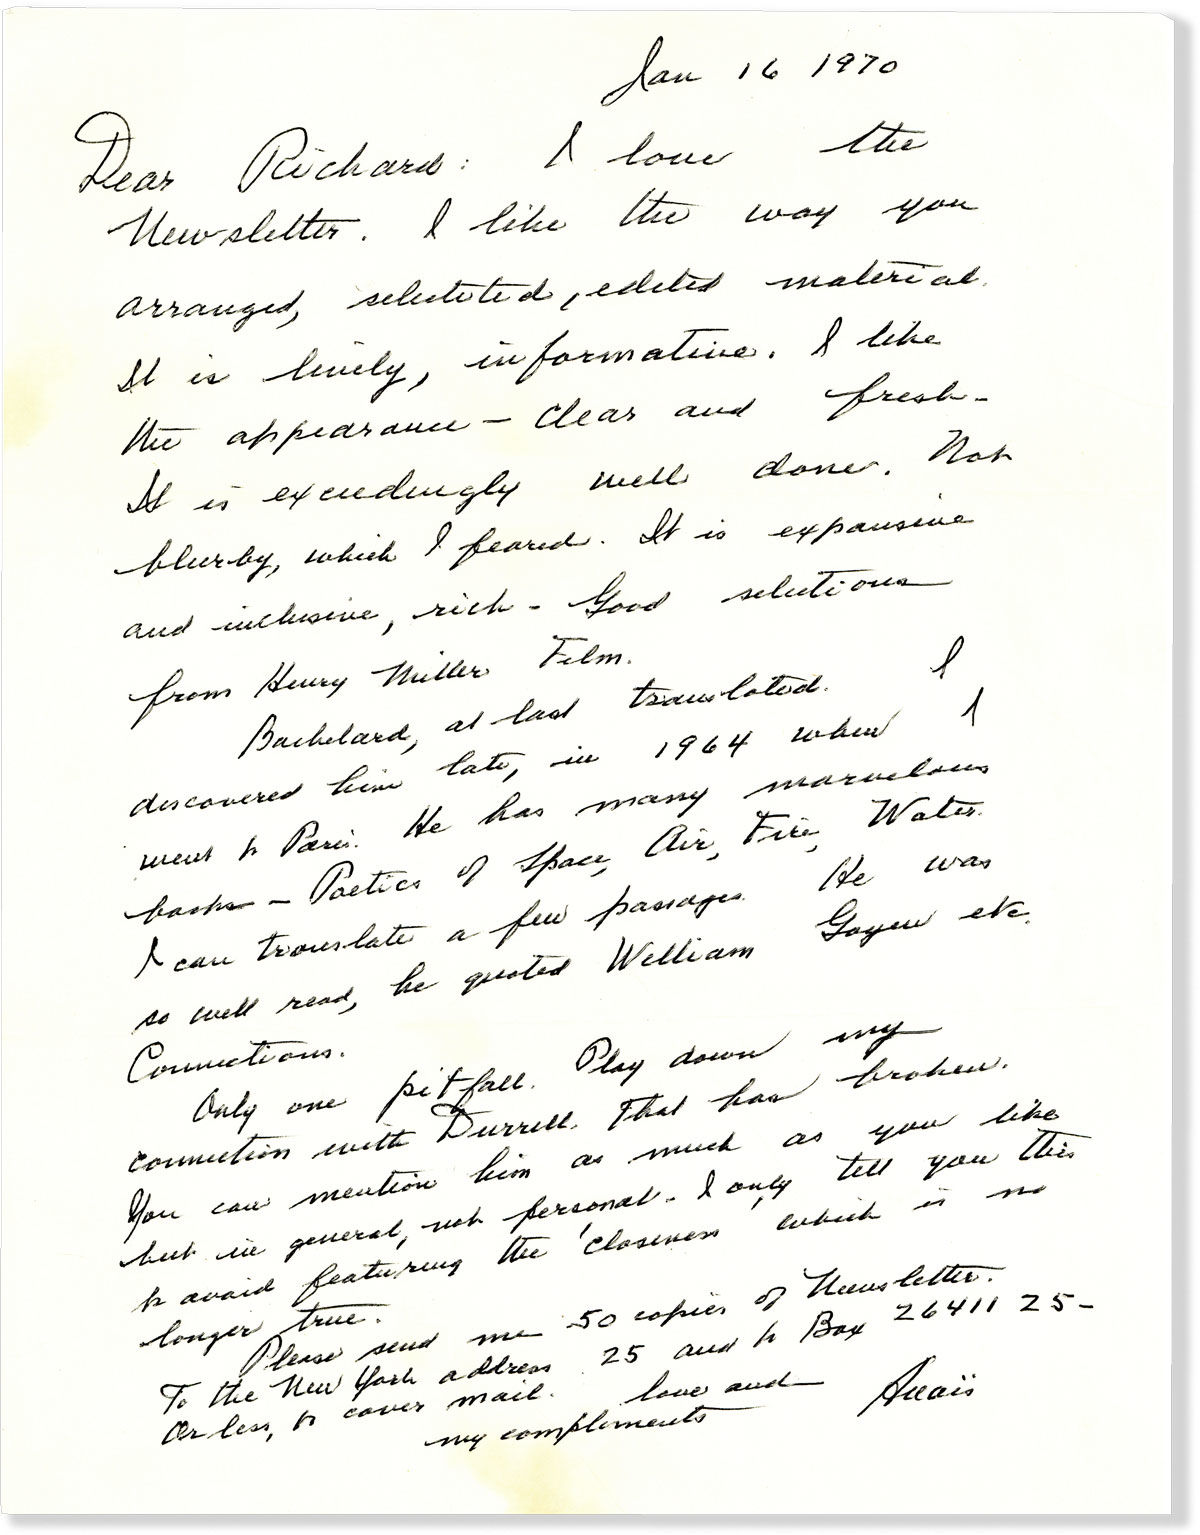 Jan 16 1970
Dear Richard: I love the
Newsletter. I like the way you
arranged, selecteted, edited material.
It is lively, informative. I like
the appearance – clear and fresh –
It is exceedingly well done. Not
blurby, which I feared. It is expansive
and inclusive, rich – Good selections
from Henry Miller Film.
Bachelard, at last translated. I
discovered him late, in 1964 when I
went to Paris. He has many marvelous
books – Poetics of Space, Air, Fire, Water.
I can translate a few passages. He was
so well read, he quoted William Goyen etc.
Connections.
Only one pitfall. Play down my
connection with Durrell. That has broken.
You can mention him as much as you like
but in general, not personal. I only tell you this
to avoid featuring the 'closeness' which is no
longer true.
Please send me 50 copies of Newsletter.
To the New York address 25 and to Box 26411 25 –
Or less, to cover mail. love and Anaïs
my compliments